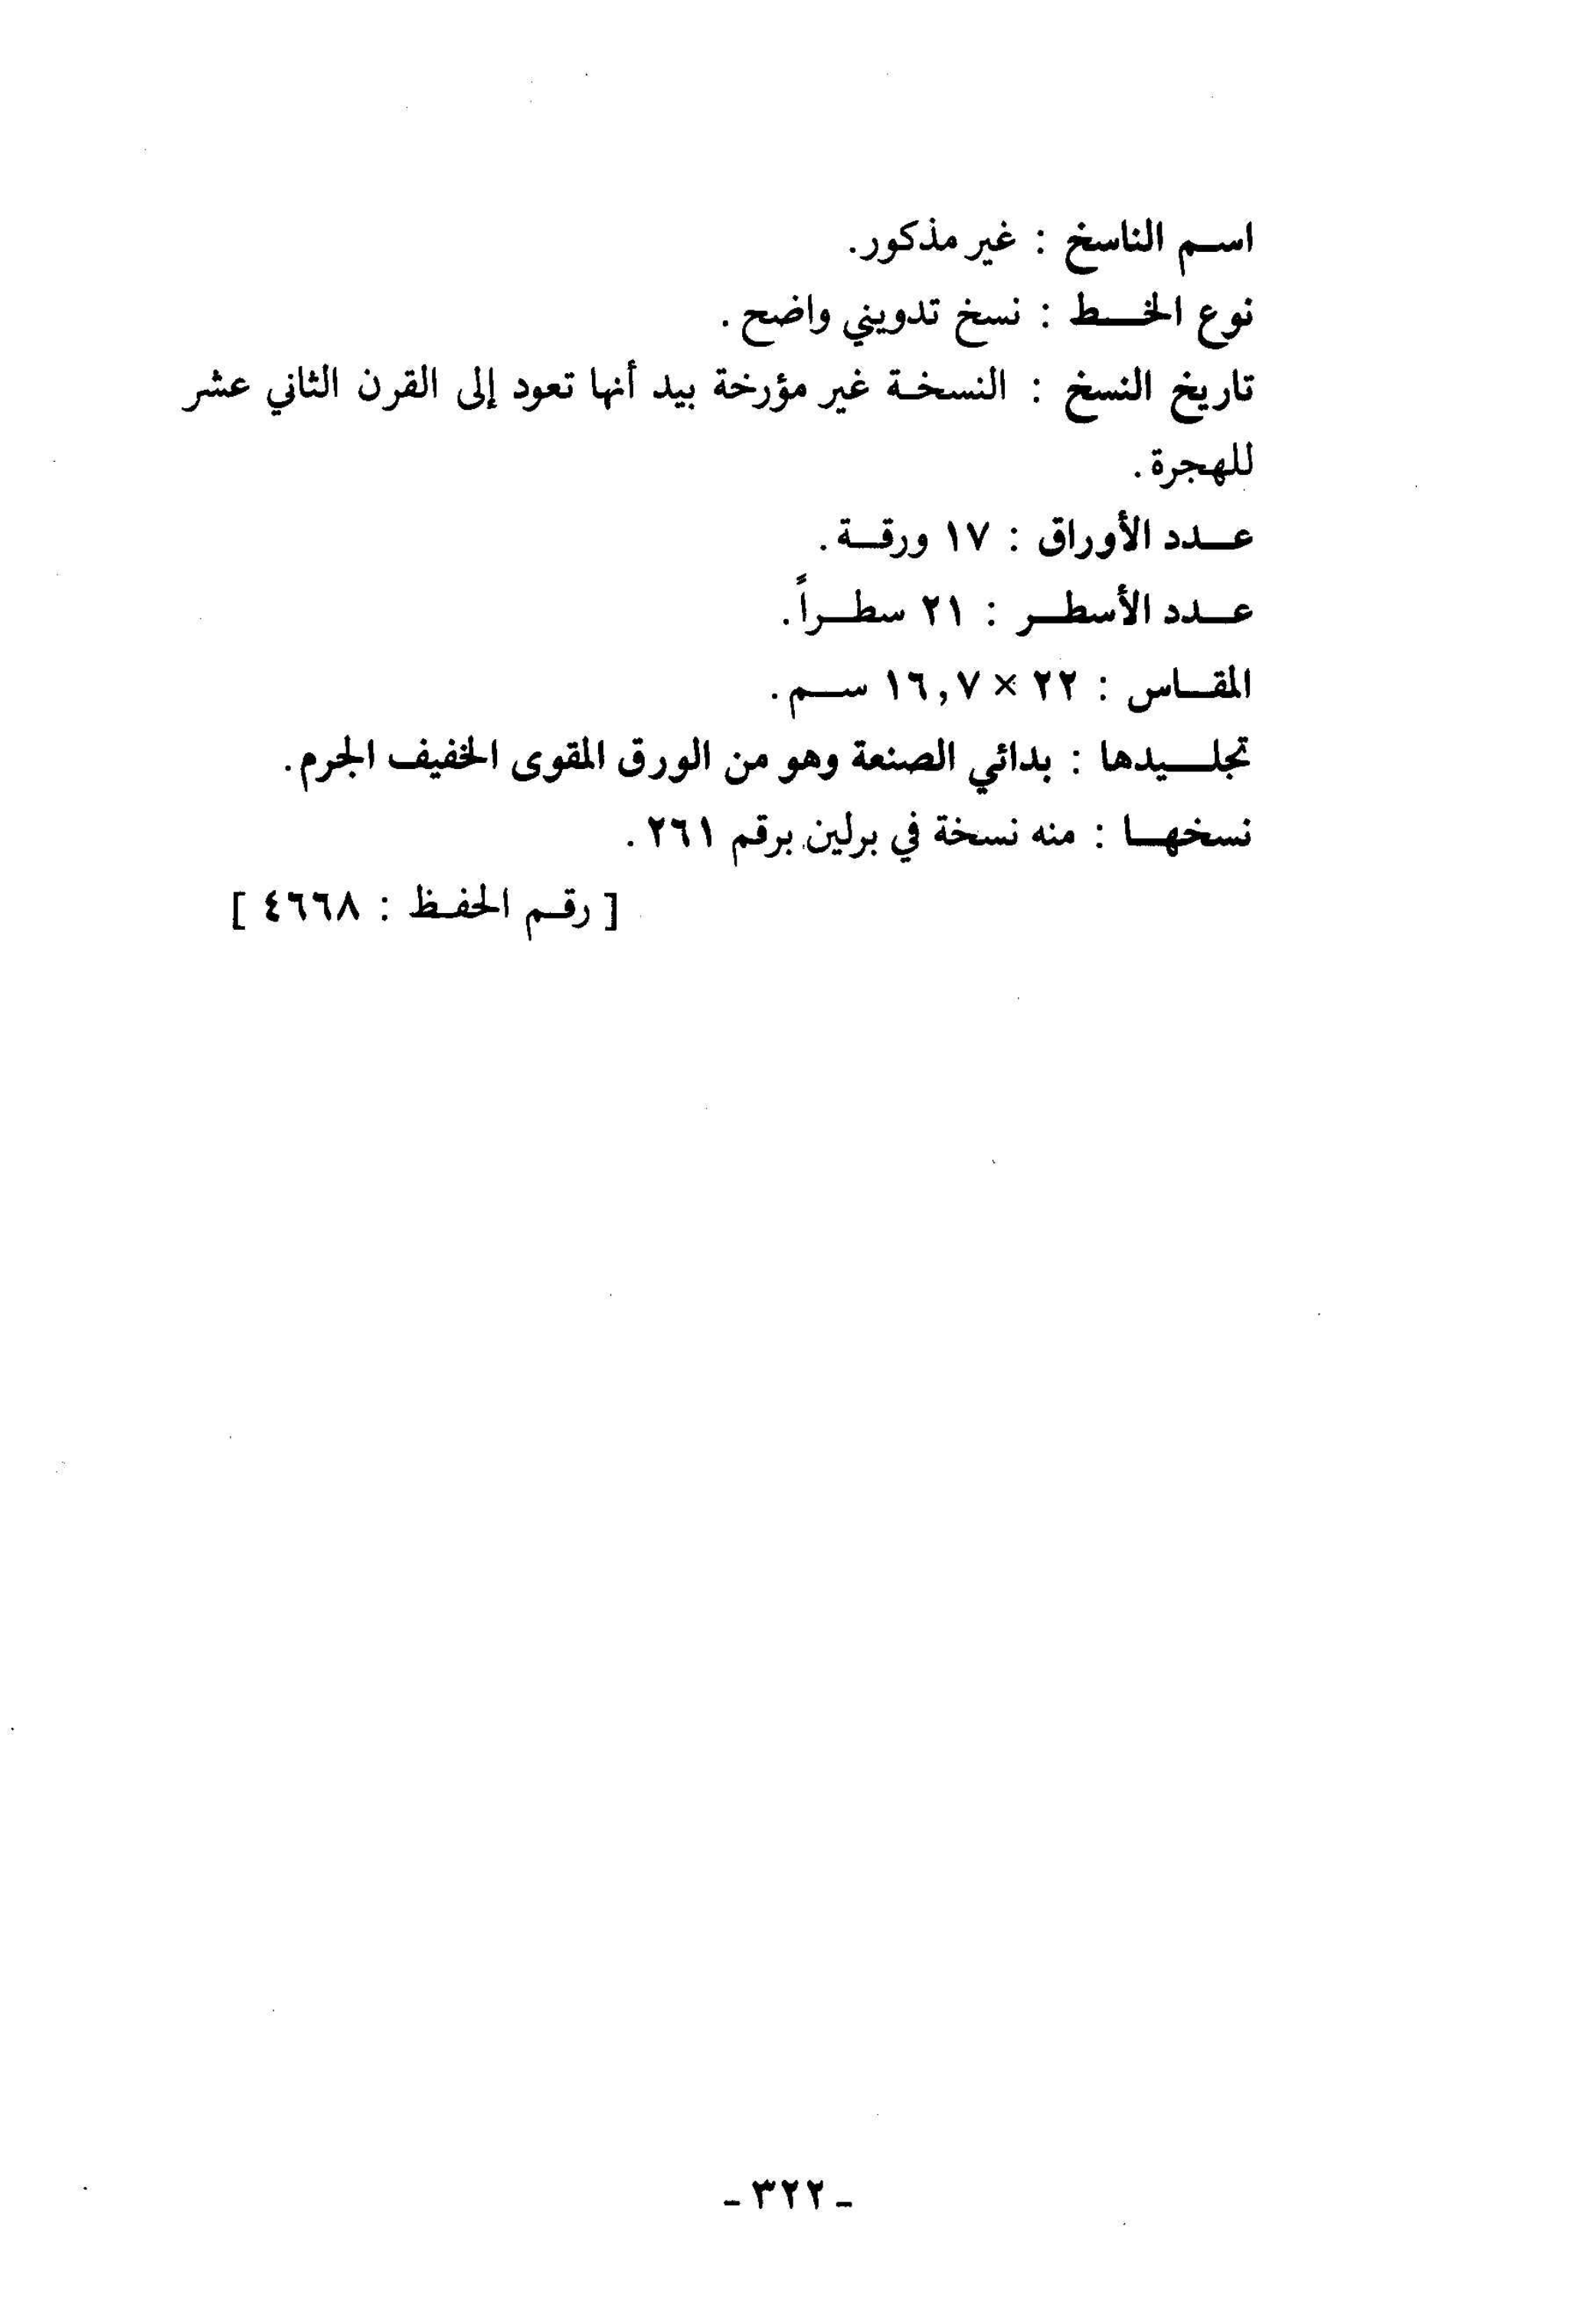 اسم الناسخ : غير مذكور.
نوع الخط : نسخ تدويني واضح .
تاريخ النسخ : النسخة غير مؤرخة بيد أنها تعود إلى القرن الثاني عشر
للهجرة .
عدد الأوراق : ١٧ ورقة .
عدد الأسطر : ٢١ سطراً .
المقاس : ٢٢ × ١٦,٧ سم .
تجليدها : بدائي الصنعة وهو من الورق المقوى الخفيف الجرم .
نسخها : منه نسخة في برلين برقم ٢٦١ .
[ رقم الحفظ : ٤٦٦٨ ]
- ٣٢٢ -